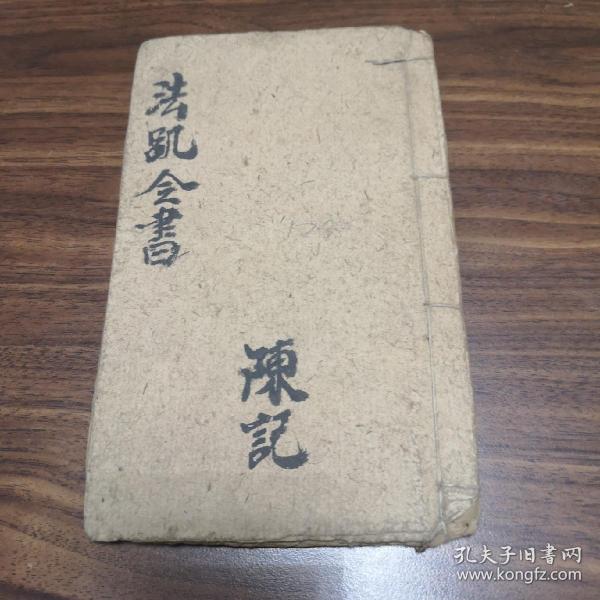 法䟘全書
陳記
孔夫子旧书网
www.kongfz.com